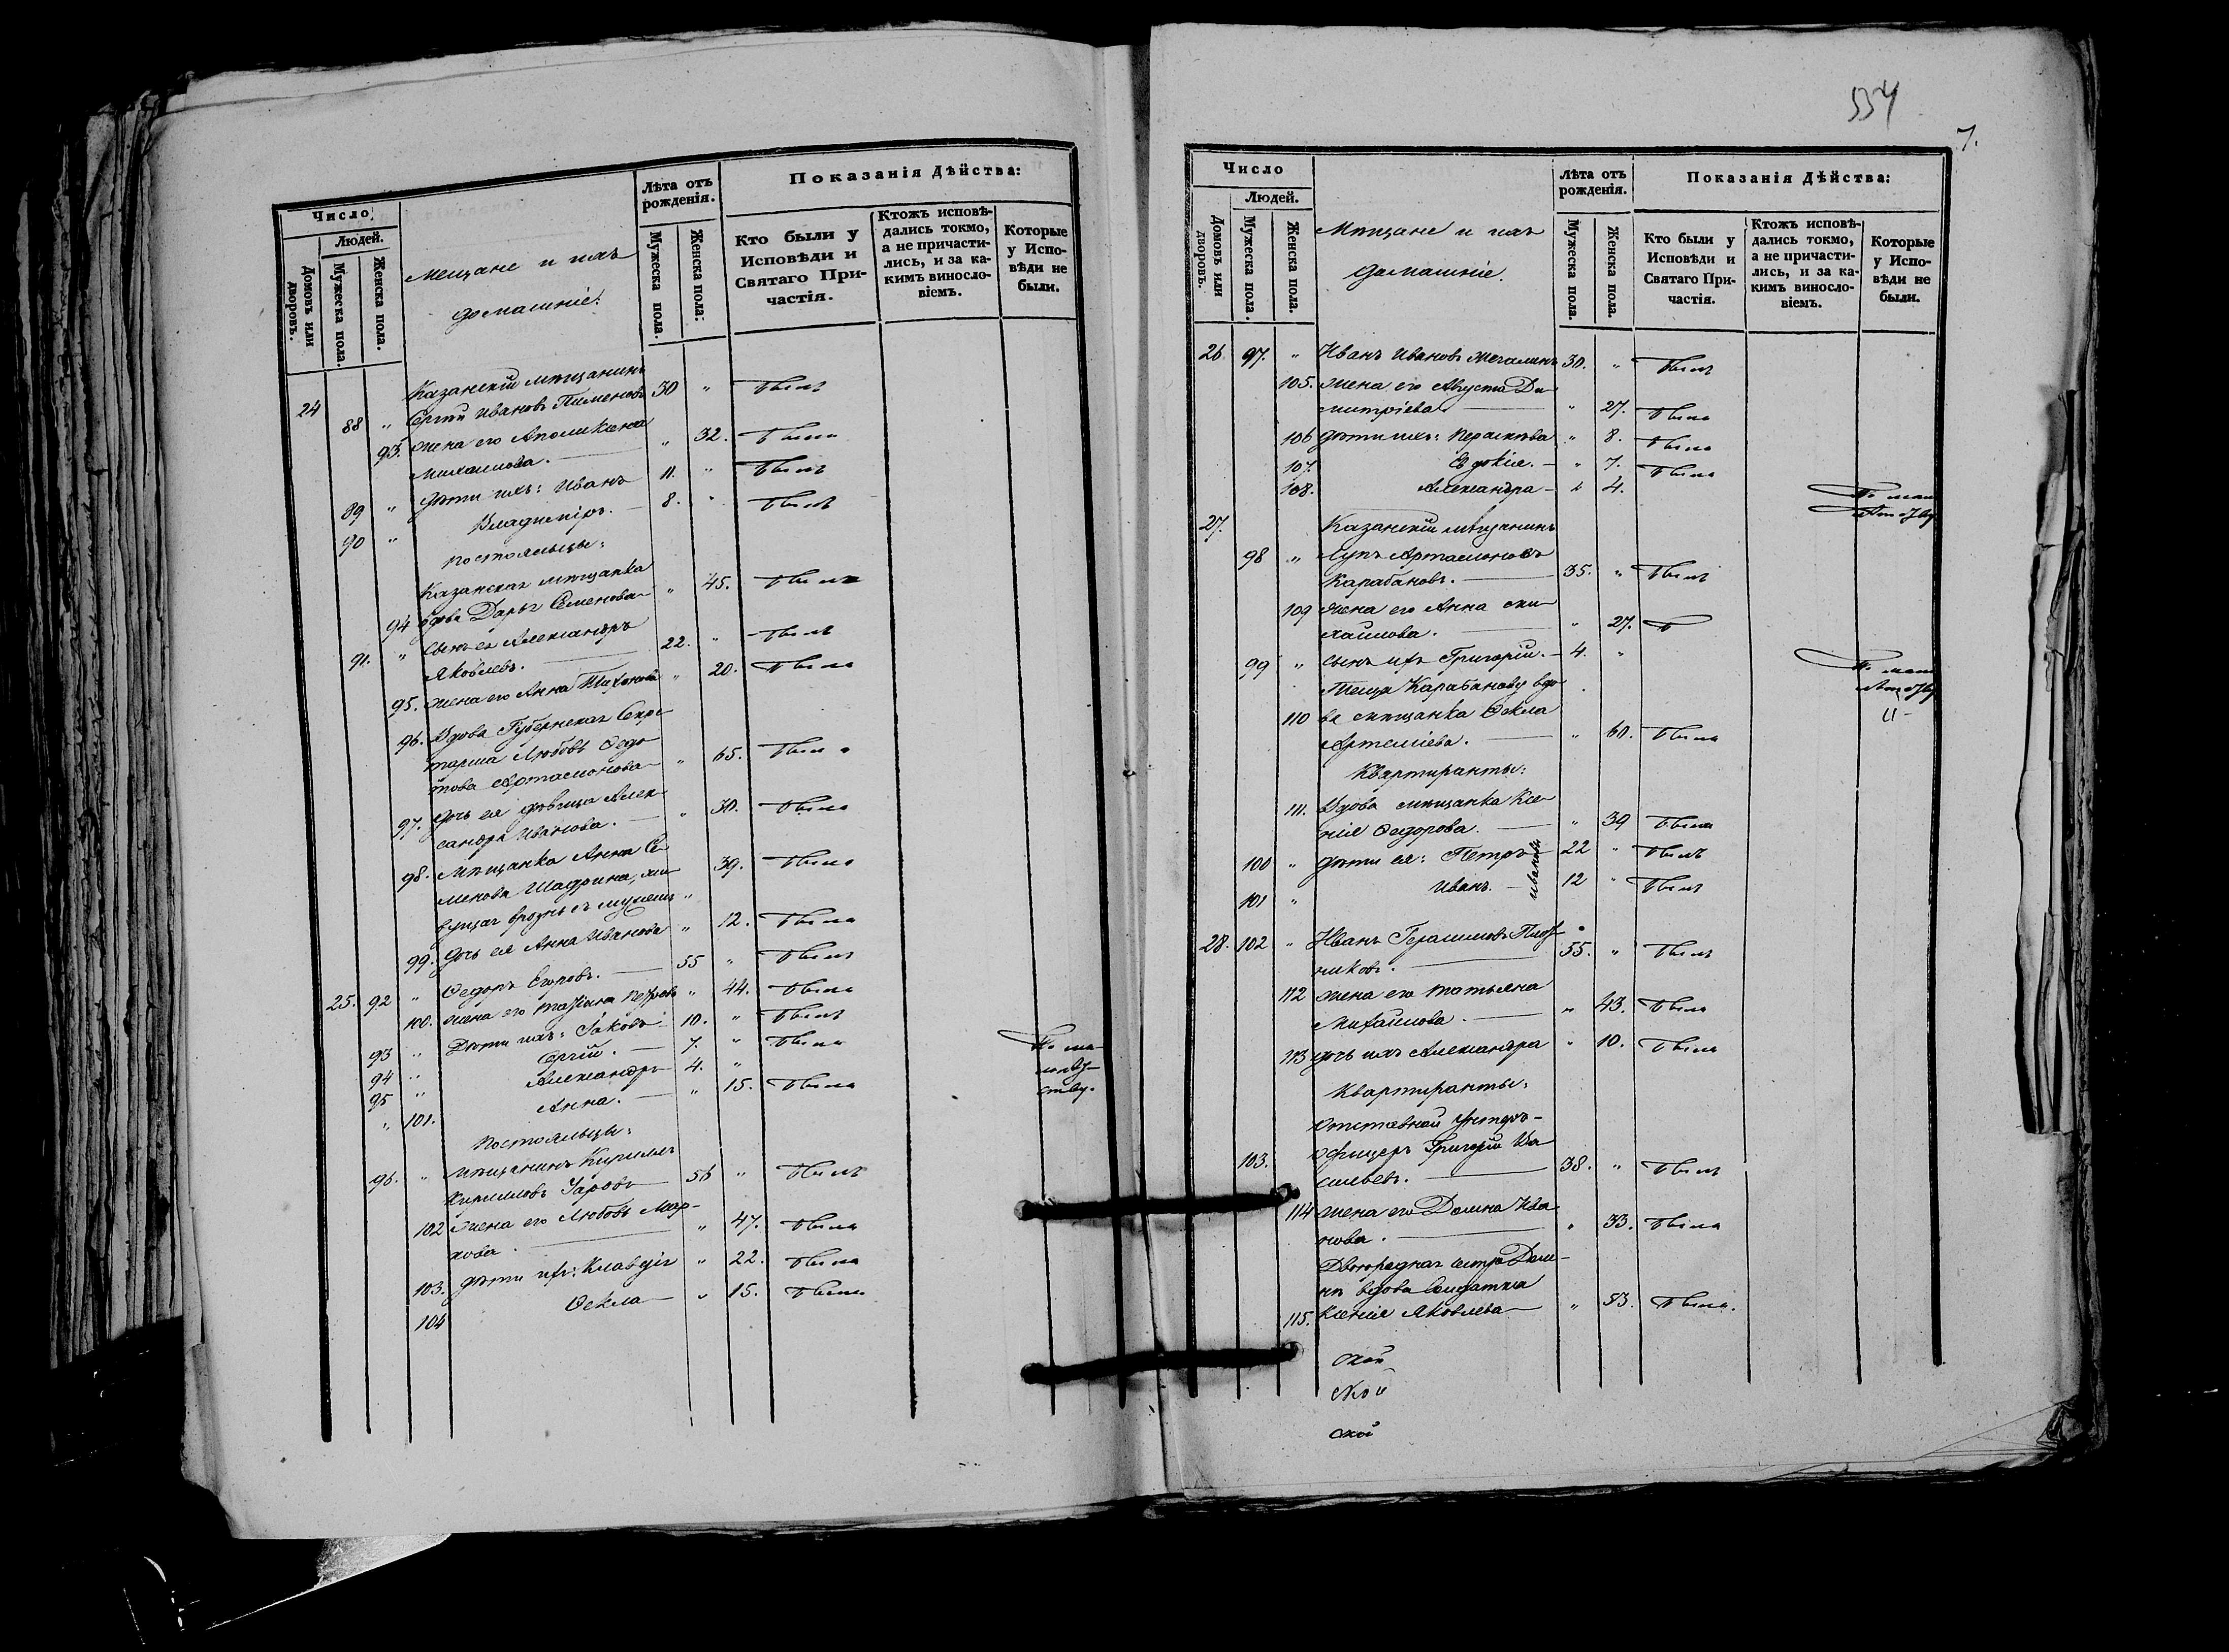 Число
Людей.
Домовъ или дворовъ.
Мужеска пола.
Женска пола.
Мещане и ихъ
домашніе:
Лѣта отъ рожденія.
Мужеска пола.
Женска пола:
Показанія Дѣйства:
Кто были у Исповѣди и Святаго При-
частія.
Ктожъ исповѣ-
дались токмо,
а не причасти-
лись, и за ка-
кимъ винosло-
віемъ.
Которые
у Испо-
вѣди не
были.
24 Казанскій мѣщанинъ
88 " Сергій Ивановъ Пименовъ 30 " былъ
93. жена его Аполинарія
Михаилова. " 32. была
89 " Дѣти ихъ: Иванъ 11. " былъ
90 " Владиміръ. 8. " былъ
постояльцы:
Казанская мѣщанка
94 вдова Дарья Семенова " 45. была
91. " сынъ ея Александръ
Яковлевъ. 22. " былъ
95. жена его Анна Тихонова " 20. была
96. Вдова Губернская Секре
тарша Любовь Ѳедо
това Артамонова " 65. была
97. дочь ея дѣвица Алек
сандра Иванова. " 30. была
98. Мѣщанка Анна Се
менова Шадрина, жи
вущая врознь съ мужемъ " 39. была
99. дочь ея Анна Иванова " 12. была
25. 92 " Ѳедоръ Егоровъ. 55 " былъ
100. жена его Петрова " 44. была
93 " Дѣти ихъ: Іаковъ 10. " былъ
94 " Сергій. 7. " была
95 " Александръ 4. " По ма-
лолѣт-
ству.
" 101. Анна. " 15. была
постояльцы:
96. " Мѣщанинъ Кириллъ
Кирилловъ Уаровъ 56 " былъ
102 жена его Любовь Мар-
кова. " 47. была
103. дѣти ихъ: Клавдія " 22. была
104 Ѳекла " 15. была
554
7.
Число
Людей.
Домовъ или дворовъ.
Мужеска пола.
Женска пола.
Мѣщане и ихъ
домашніе.
Лѣта отъ рожденія.
Мужеска пола.
Женска пола.
Показанія Дѣйства:
Кто были у
Исповѣди и
Святаго При-
частія.
Ктожъ исповѣ-
дались токмо,
а не причасти-
лись, и за ка-
кимъ винosло-
віемъ.
Которые
у Испо-
вѣди не
были.
26 97. " Иванъ Ивановъ 30. " былъ
105. жена его Августа Ди
митріева " 27. была
106 дѣти ихъ: Параскева " 8. была
107. Евдокія. " 7. была
108. Александра " 4. По мал
27. Казанскій мѣщанинъ
98 " Лупъ Артамоновъ
Карабановъ. 35. " былъ
109 жена его Анна Ми
хаилова. " 27. б
99 " сынъ ихъ Григорій. 4. " По мал
Теща Карабанову вдо
110 ва мѣщанка Ѳекла
Артеміева. " 60. была
Квартиранты:
111. Вдова мѣщанка Ксе
нія Ѳедорова. " 39 была
100 " дѣти ея: Петръ 22 " былъ
Ивановы
101 " Иванъ. 12 " былъ
28. 102 " Иванъ Герасимовъ Плот
никовъ. 55. " былъ
112 жена его Татьяна
Михаилова. " 43. была
113 дочь ихъ Александра " 10. была
Квартиранты:
Отставной унтеръ-
103. офицеръ Григорій Ва
сильевъ. 38. " былъ
114 жена его Домна Ива
нова. " 33. была
Двоюродная сестра Дом
нѣ вдова солдатка
115. Ксенія Яковлева " 53. была.